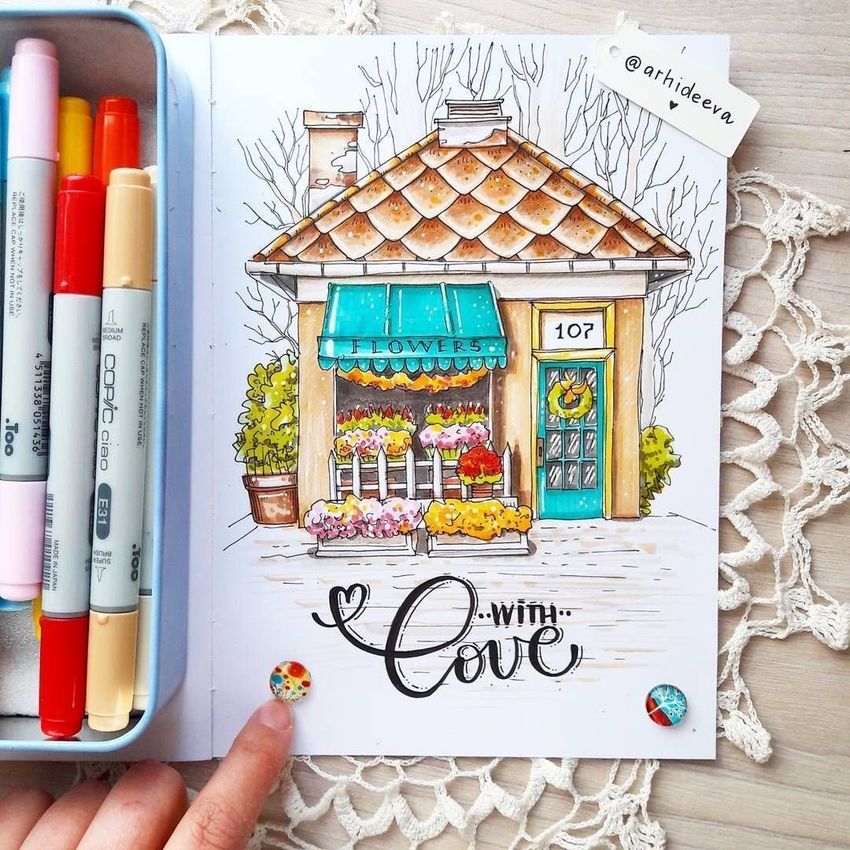 @arhideeva
107
FLOWERS
..WITH..
Love
REPLACE CAP WHEN NOT IN USE
REPLACE CAP WHEN NOT IN USE
MEDIUM
BROAD
COPIC ciao
E31
SUPER
BRUSH
.Too
.Too
4 511338 051436
MADE IN JAPAN